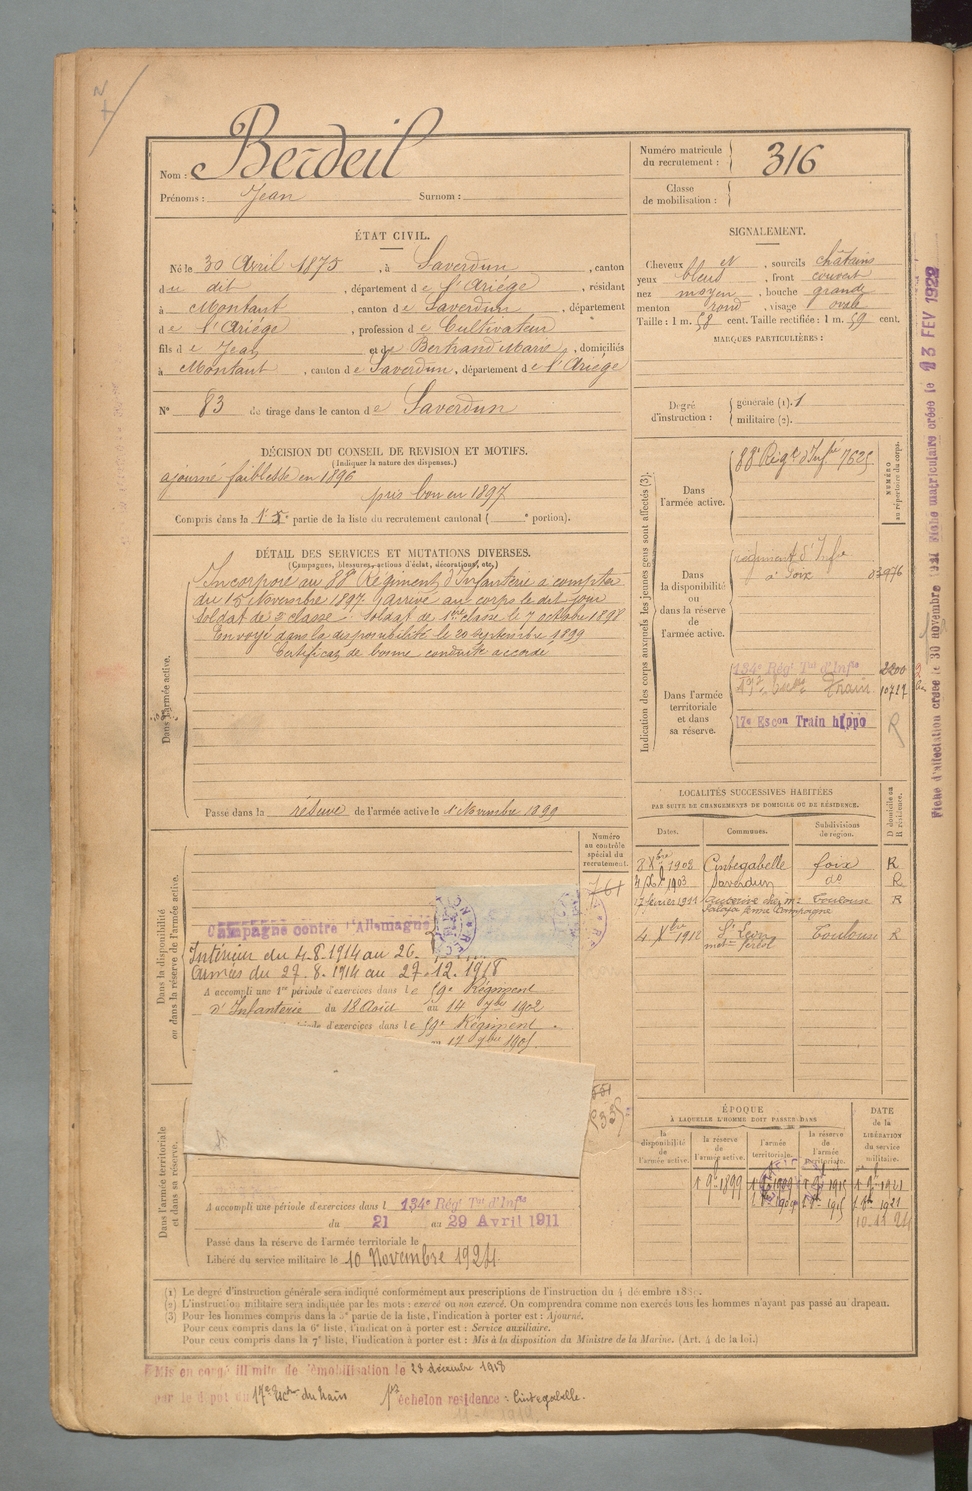 Nom : Berdeil
Prénoms : Jean Surnom :
Numéro matricule du recrutement : 316
Classe de mobilisation :
ÉTAT CIVIL.
Né le 30 Avril 1875, à Saverdun, canton
du dit, département de l'Ariége, résidant
à Montaut, canton de Saverdun, département
de l'Ariége, profession de Cultivateur
fils de Jean et de Bertrand Marie, domiciliés
à Montaut, canton de Saverdun, département de l'Ariége
N° 83 de tirage dans le canton de Saverdun
SIGNALEMENT.
Cheveux et, sourcils châtains
yeux bleus, front couvert
nez moyen, bouche grande
menton rond, visage ovale
Taille : 1 m. 58 cent. Taille rectifiée : 1 m. 59 cent.
MARQUES PARTICULIÈRES :
Degré d'instruction : générale (1). 1
militaire (2).
DÉCISION DU CONSEIL DE REVISION ET MOTIFS.
(Indiquer la nature des dispenses.)
ajourné faiblesse en 1896
pris bon en 1897
Compris dans la partie de la liste du recrutement cantonal ( e portion).
DÉTAIL DES SERVICES ET MUTATIONS DIVERSES.
(Campagnes, blessures, actions d'éclat, décorations, etc.)
Dans l'armée active.
Incorporé au 88e Régiment d'Infanterie a compter
du 15 Novembre 1897. arrivé au corps le dit jour
Soldat de 2e classe. Soldat de 1ère classe le 7 octobre 1898
Envoyé dans la disponibilité le 20 Septembre 1899
Certificat de bonne conduite accordé
Passé dans la réserve de l'armée active le 1er Novembre 1899
Indication des corps auxquels les jeunes gens sont affectés (3).
NUMÉRO au répertoire du corps.
Dans l'armée active. 88e Régt d'Infie 7625
Dans la disponibilité ou dans la réserve de l'armée active. regiment d'Infie à Foix
Dans l'armée territoriale et dans sa réserve. 134e Régt Tal d'Infie 2200
Train
17e Escon Train hippo R
LOCALITÉS SUCCESSIVES HABITÉES
PAR SUITE DE CHANGEMENTS DE DOMICILE OU DE RÉSIDENCE.
Dates. Communes. Subdivisions de région. D domicile ou R résidence.
8 Xbre 1902 Cintegabelle foix R
1903 Saverdun do R
février 1911 Auterive Toulouse R
4 Xbre 1912 St Léon Toulouse R
Dans la disponibilité ou dans la réserve de l'armée active.
Numéro au contrôle spécial du recrutement.
761
Campagne contre l'Allemagne
Intérieur du 4-8-1914 au 26.
Armées du 27.8.1914 au 27.12.1918
A accompli une 1re période d'exercices dans le 59e Régiment
d'Infanterie du 18 Août au 14 7bre 1902
période d'exercices dans le 59e Régiment
au 17 7bre 1905.
Dans l'armée territoriale et dans sa réserve.
A accompli une période d'exercices dans l 134e Régt Tal d'Infie
du 21 au 29 Avril 1911
Passé dans la réserve de l'armée territoriale le
Libéré du service militaire le 10 Novembre 1924.
ÉPOQUE
À LAQUELLE L'HOMME DOIT PASSER DANS
la disponibilité de l'armée active. la réserve de l'armée active. l'armée territoriale. la réserve de l'armée territoriale.
DATE de la LIBÉRATION du service militaire.
1899 1909 1915 1921
1909 1915 1921
10-11 24
(1) Le degré d'instruction générale sera indiqué conformément aux prescriptions de l'instruction du 4 décembre 1889.
(2) L'instruction militaire sera indiquée par les mots : exercé ou non exercé. On comprendra comme non exercés tous les hommes n'ayant pas passé au drapeau.
(3) Pour les hommes compris dans la 5e partie de la liste, l'indication à porter est : Ajourné.
Pour ceux compris dans la 6e liste, l'indication à porter est : Service auxiliaire.
Pour ceux compris dans la 7e liste, l'indication à porter est : Mis à la disposition du Ministre de la Marine. (Art. 4 de la loi.)
Mis en congé illimité de démobilisation le 28 décembre 1918
par le dépôt du 17e Escon du train échelon résidence : Cintegabelle.
Fiche d'affectation créée le 30 novembre 1911 Fiche matriculaire créée le 23 FEV 1922